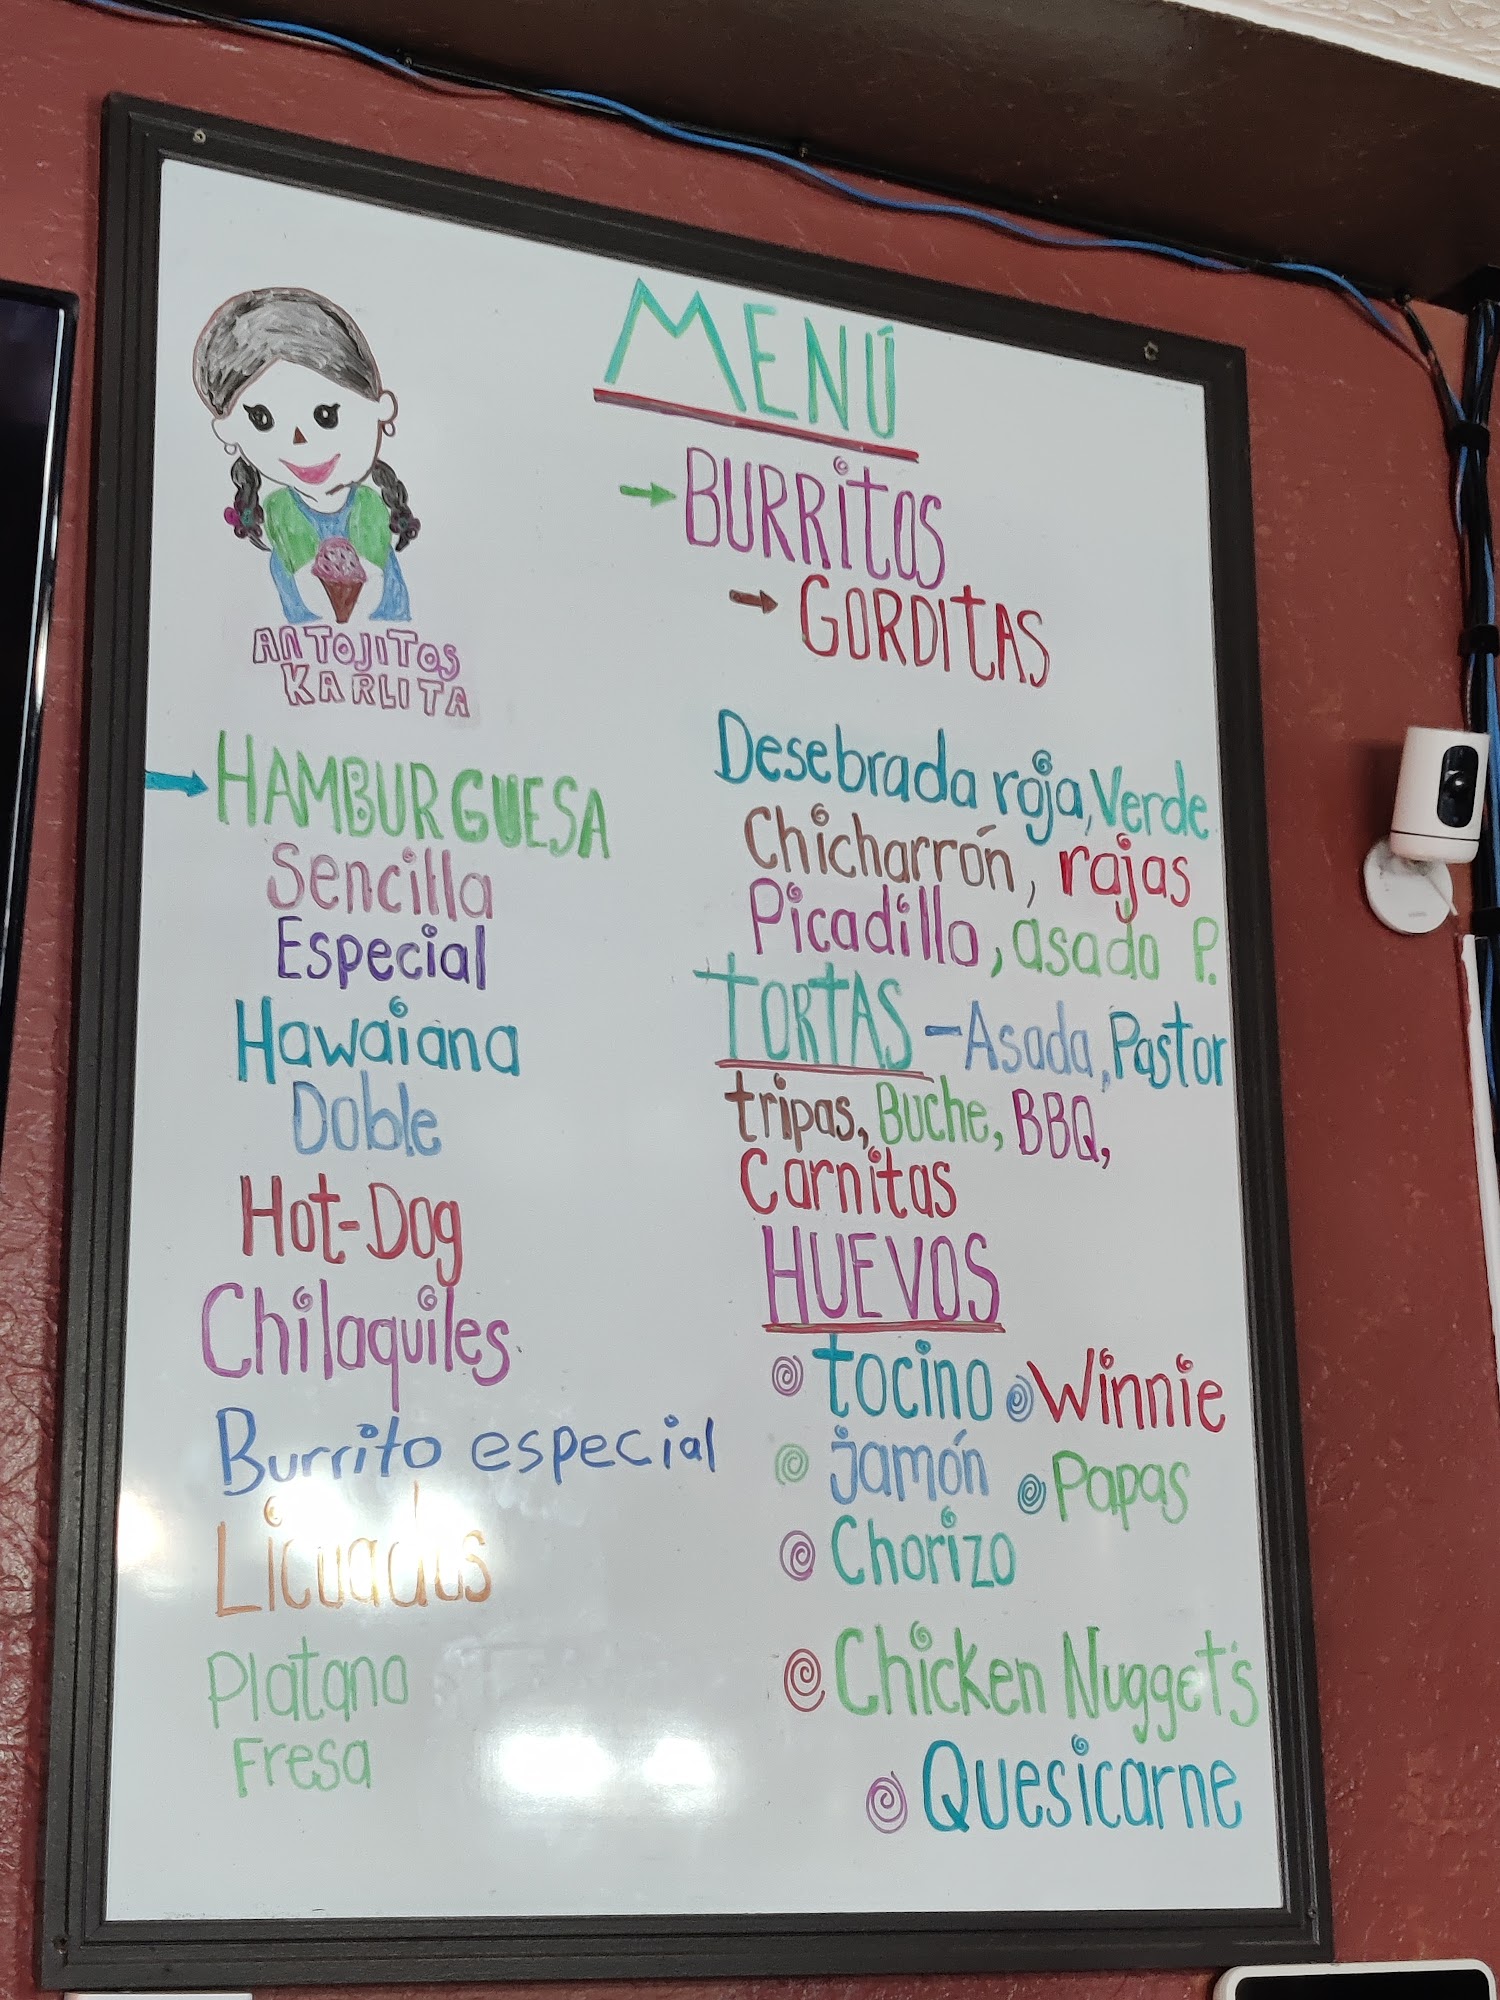 MENÚ
BURRITOS
GORDITAS
ANTOJITOS
KARLITA
HAMBURGUESA
Sencilla
Especial
Hawaiana
Doble
Hot-Dog
Chilaquiles
Burrito especial
Licuados
Platano
Fresa
Desebrada roja, Verde
Chicharrón, rajas
Picadillo, asado P.
TORTAS - Asada, Pastor
tripas, Buche, BBQ,
Carnitas
HUEVOS
tocino Winnie
jamón Papas
Chorizo
Chicken Nugget's
Quesicarne